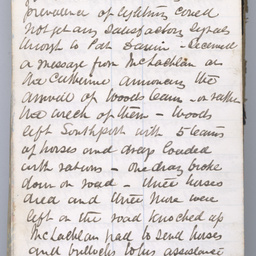 prevalence of lightning could
not get any satisfactory signals
through to Port Darwin - Received
a message from McLachlan at
the Catherine announcing the
arrival of Woods team - or rather
the wreck of them - Woods
left Southport with 5 teams
of horses and drays loaded
with rations - one dray broke
down on road - three horses
dead and three more were
left on the road knocked up
McLachlan had to send horses
and bullocks to his assistance